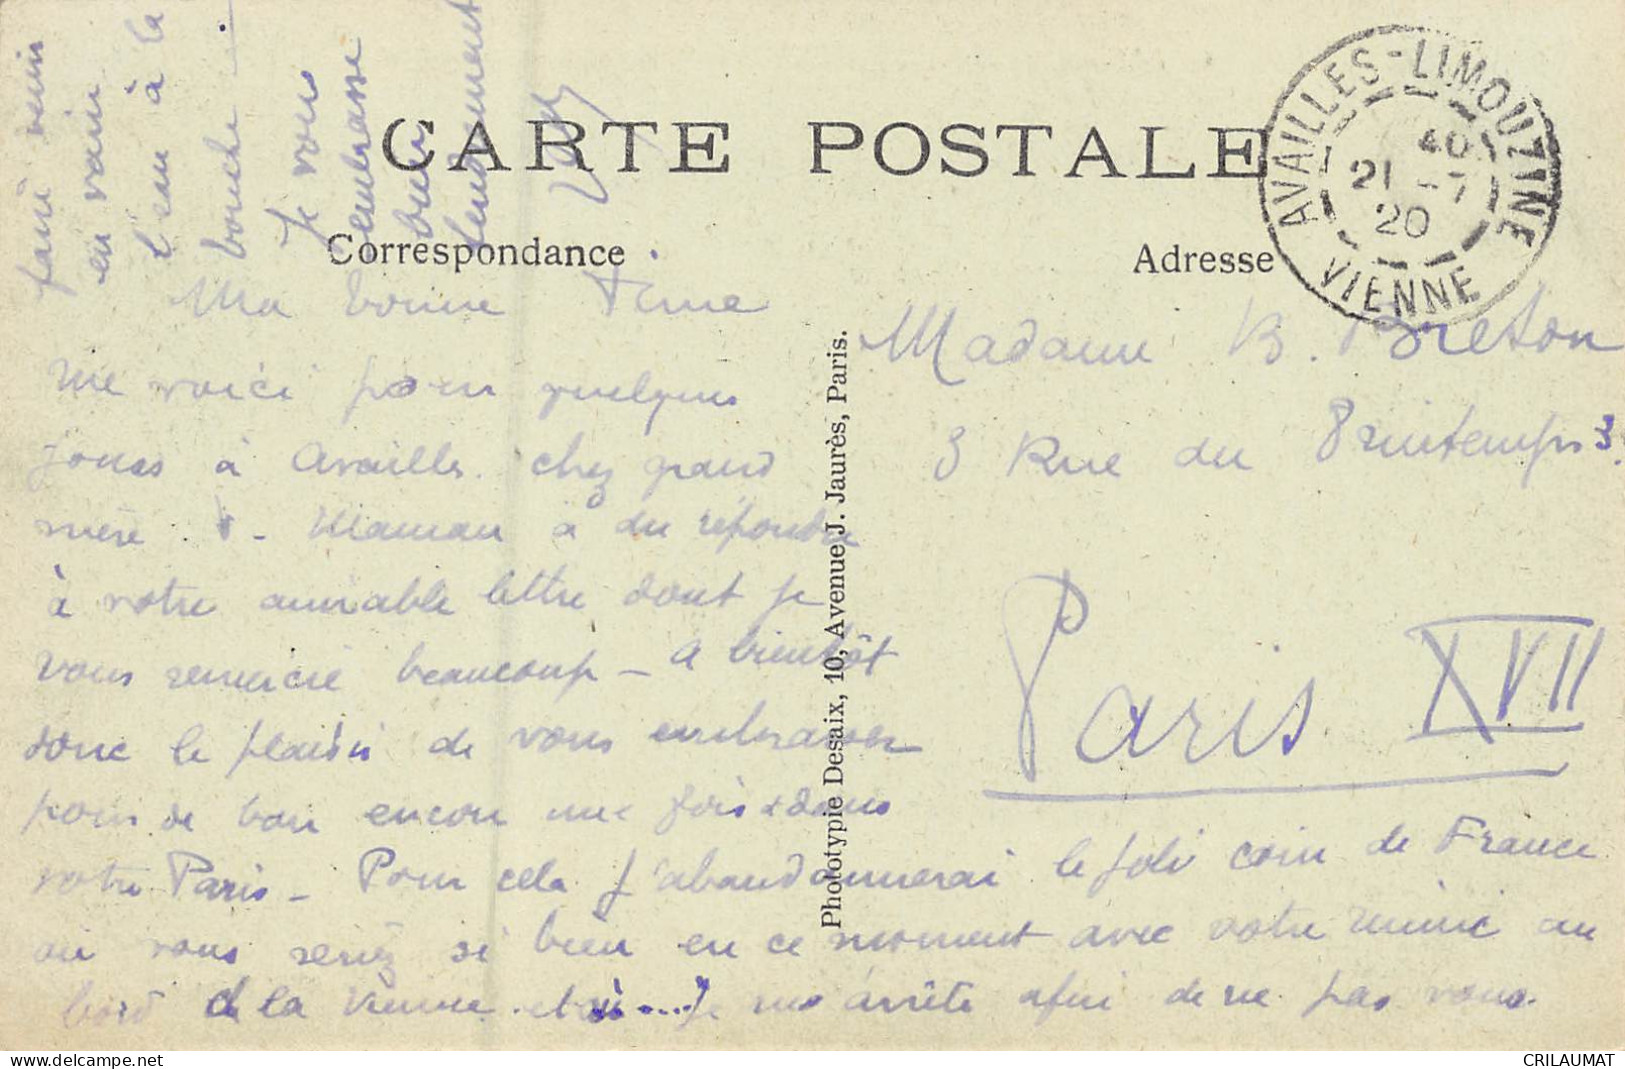 CARTE POSTALE
Correspondance
Adresse
AVAILLES-LIMOUZINE
40
21 -7
20
VIENNE
Ma bonne
me voici pour quelques
jours à Availles. chez grand
mère. - Maman a du répondre
à votre aimable lettre dont je
vous remercie beaucoup - A bientôt
donc le plaisir de vous embrasser
pour de bon encore une fois dans
votre Paris - Pour cela j'abandonnerai le joli coin de France
où vous seriez si bien en ce moment avec votre mimi au
bord de la Vienne et où .... Je m'arrête afin de ne pas vous
faire venir
en vain
l'eau à la
bouche.
Je vous
embrasse
bien
tendrement
Madame B. Breton
3 Rue du Printemps 3.
Paris XVII
Phototypie Desaix, 10, Avenue J. Jaurès, Paris.
https://www.delcampe.net
CRILAUMAT